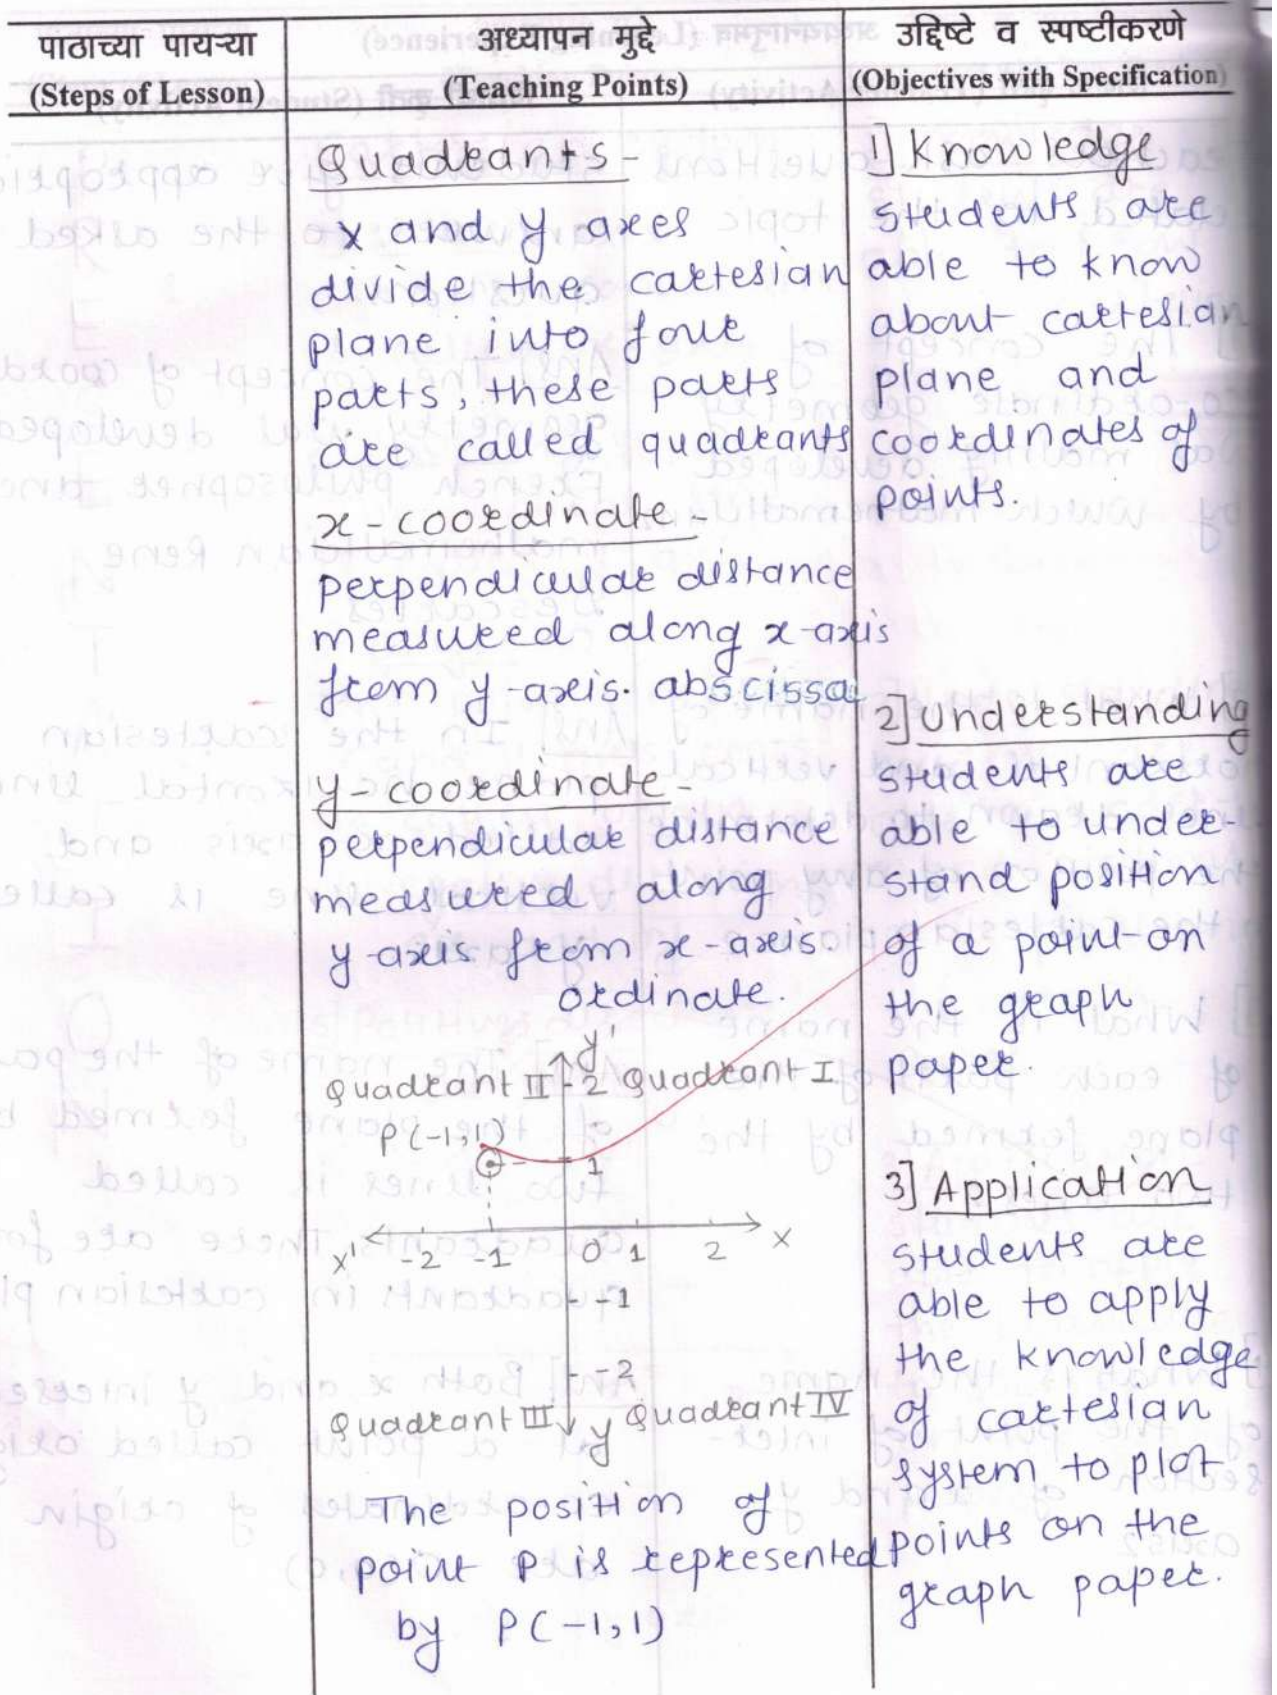 पाठाच्या पायऱ्या
(Steps of Lesson)
अध्यापन मुद्दे
(Teaching Points)
उद्दिष्टे व स्पष्टीकरणे
(Objectives with Specification)
Quadrants -
X and Y axes
divide the cartesian
plane into four
parts, these parts
are called quadrants
x-coordinate -
perpendicular distance
measured along x-axis
from y-axis. abscissa
y-coordinate -
perpendicular distance
measured along
y-axis from x-axis
ordinate.
y'
Quadrant II 2 Quadrant I
P(-1,1)
1
x' -2 -1 0 1 2 X
-1
-2
Quadrant III y Quadrant IV
The position of
point P is represented
by P(-1,1)
1] Knowledge
students are
able to know
about cartesian
plane and
coordinates of
points.
2] Understanding
students are
able to under-
stand position
of a point on
the graph
paper.
3] Application
students are
able to apply
the knowledge
of cartesian
system to plot
points on the
graph paper.